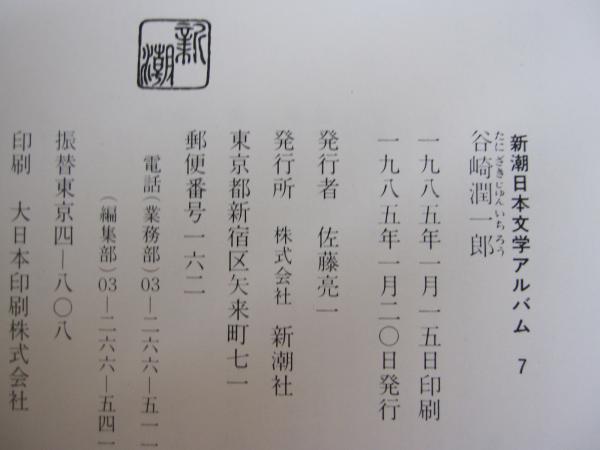 新潮日本文学アルバム 7
たにざきじゅんいちろう
谷崎潤一郎
一九八五年一月一五日印刷
一九八五年一月二〇日発行
発行者 佐藤亮一
発行所 株式会社 新潮社
東京都新宿区矢来町七一
郵便番号一六二
電話(業務部)03―二六六―五一一
(編集部)03―二六六―五四一
振替東京四―八〇八
印刷 大日本印刷株式会社
新潮